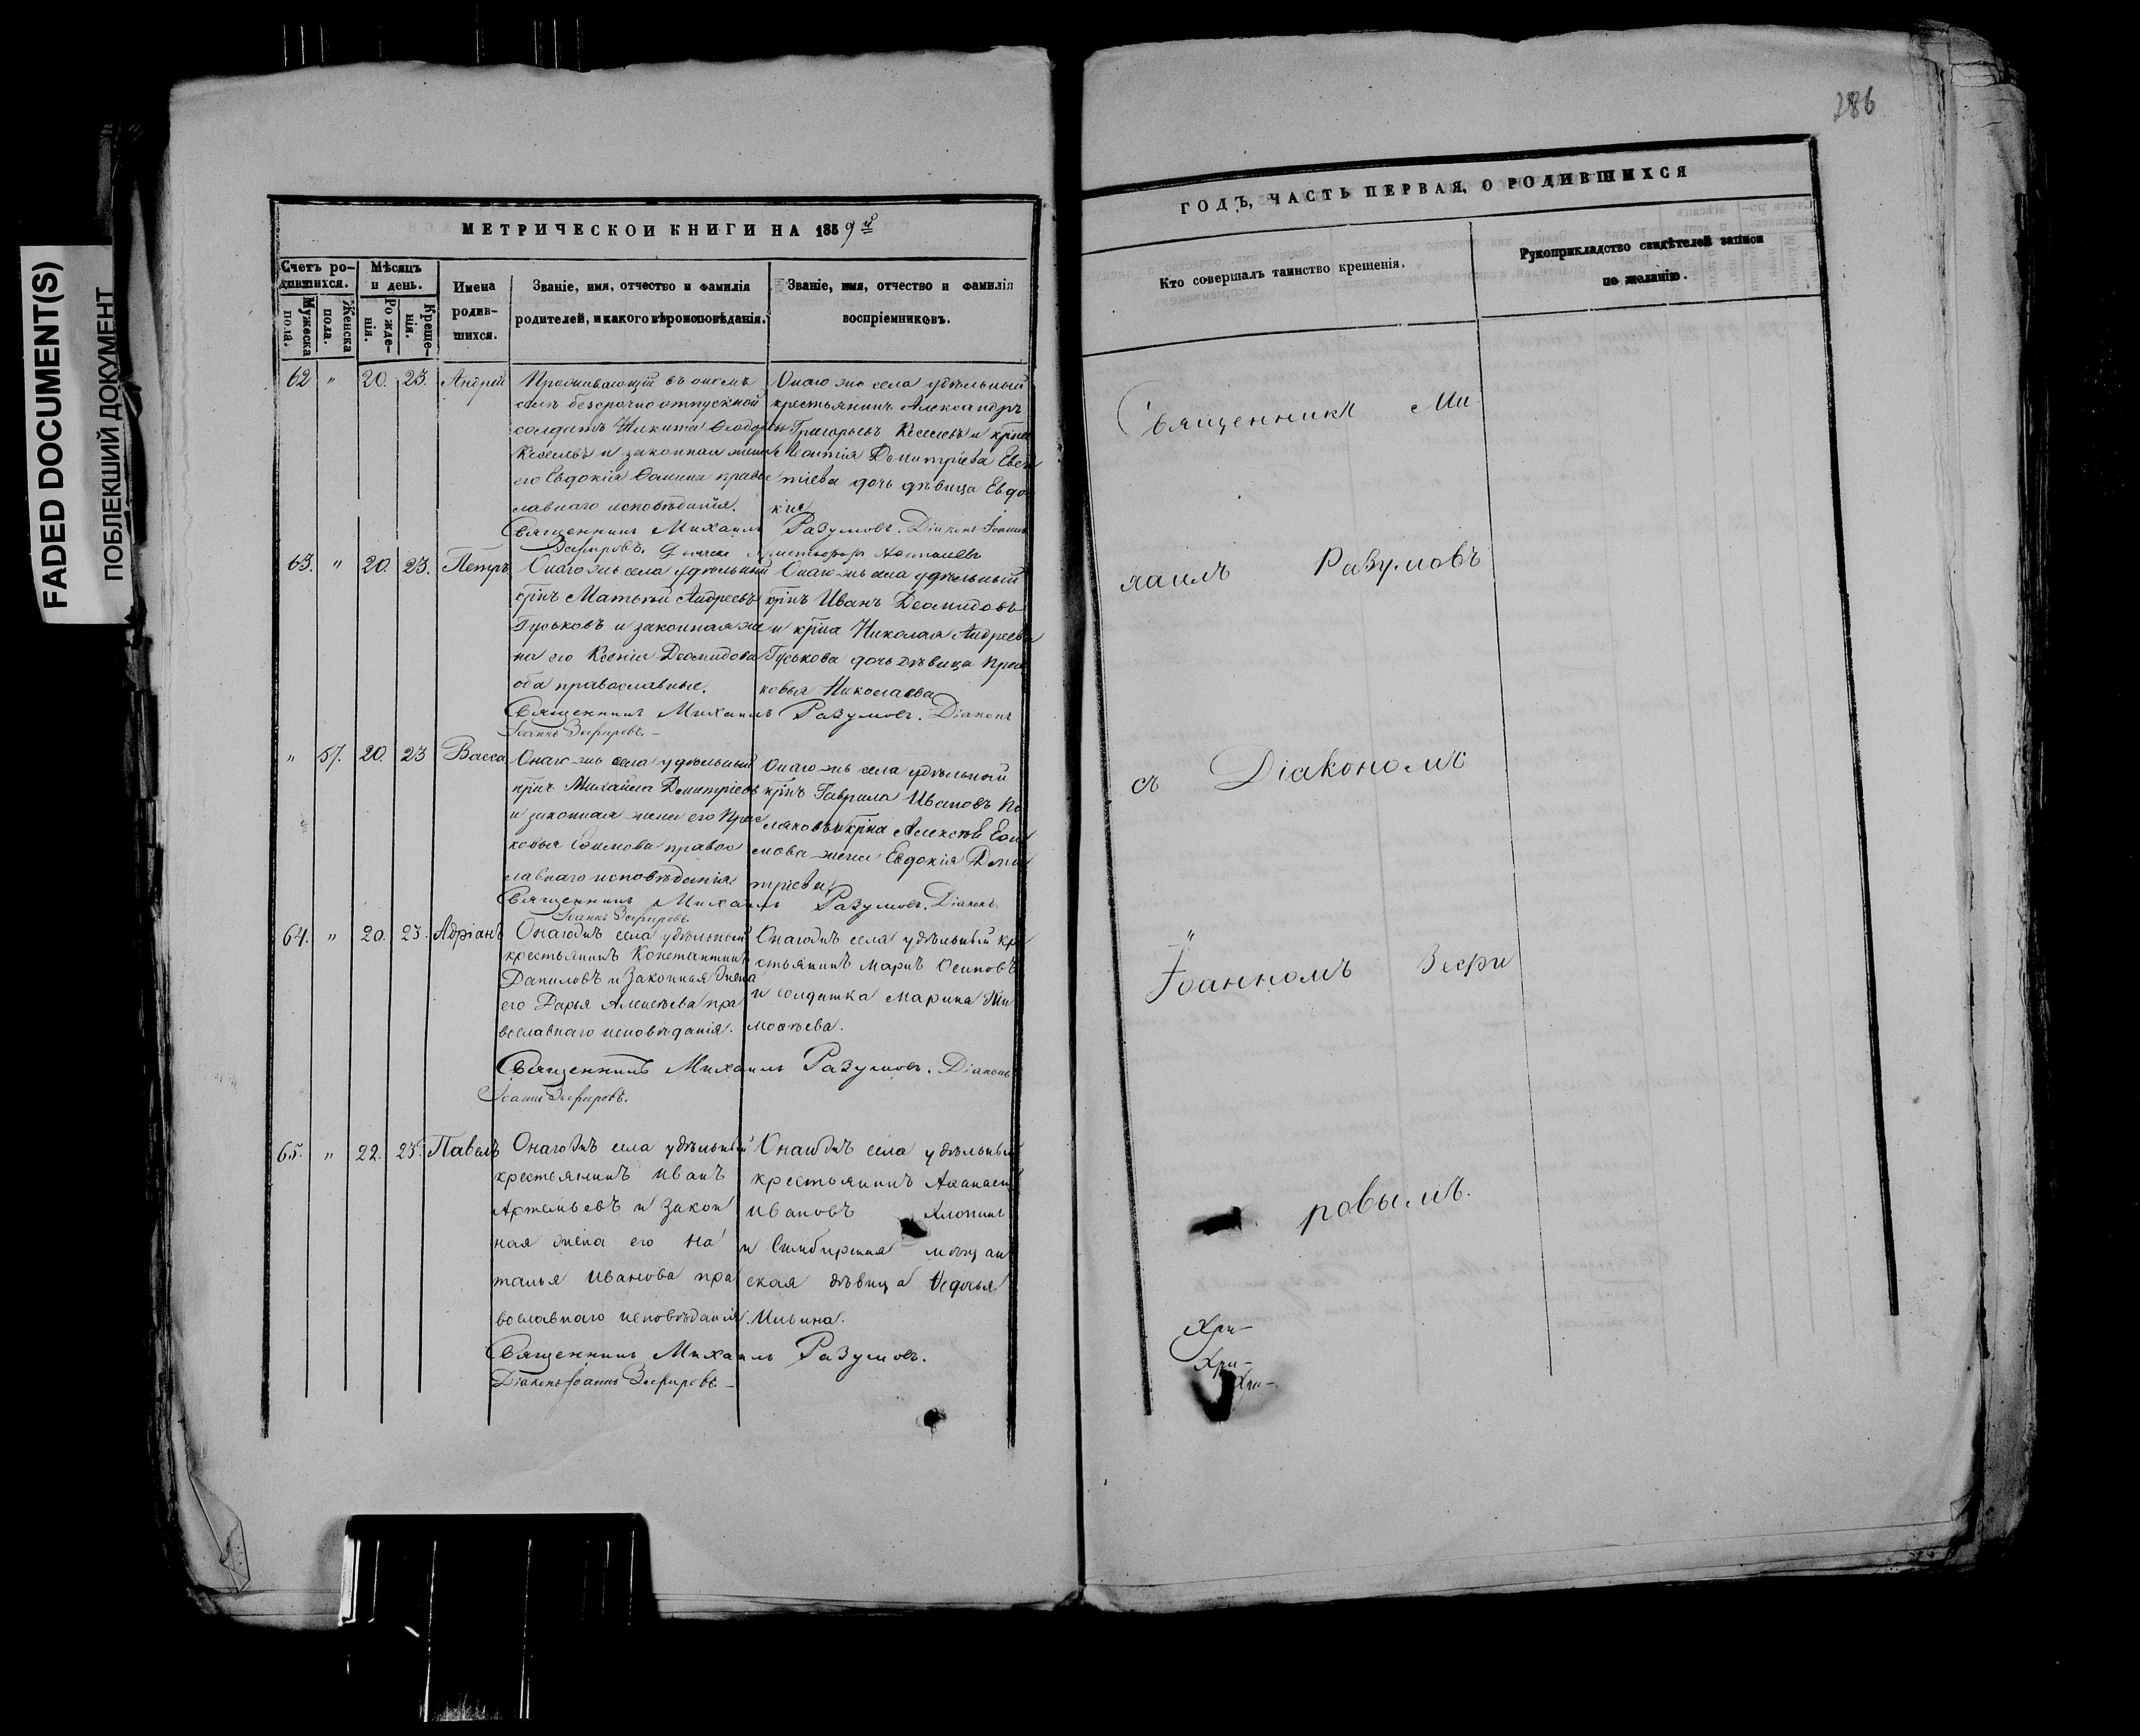 FADED DOCUMENT(S)
ПОБЛЕКШИЙ ДОКУМЕНТ
286
МЕТРИЧЕСКОЙ КНИГИ НА 1859 й
Счетъ ро-
дившихся.
Мужеска
пола.
Женска
пола.
Мѣсяцъ
и день.
Ро жде-
нія.
Креще-
нія.
Имена
родив-
шихся.
Званіе, имя, отчество и фамилія
родителей, и какого вѣроисповѣданія.
Званіе, имя, отчество и фамилія
воспріемниковъ.
62 " 20. 23. Андрей
Проживающій въ ономъ
селѣ безсрочно отпускной
солдатъ Никита Ѳеодоровъ
и законная жена
его Евдокія Ѳомина правос
лавнаго исповѣданія.
Онаго же села удѣльный
крестьянинъ Александръ
Григорьевъ и крна
Леонтія Дмитріева Евсе
тіева дочь дѣвица Евдо
кія
Священникъ Михаилъ Разумовъ. Діаконъ Іоаннъ
Зефировъ.
63. " 20. 23. Петръ
Онаго же села удѣльный
крнъ Матвѣй Андреевъ
Гуськовъ и законная же
на его Ксенія Деомидова
оба православные.
Онаго же села удѣльный
крнъ Иванъ Деомидовъ
и крна Николая Андреева
Гуськова дочь дѣвица Прас
ковья Николаева
Священникъ Михаилъ Разумовъ. Діаконъ
Іоаннъ Зефировъ.
" 57. 20. 23 Васса
Онаго же села удѣльный
крнъ Михайла Дмитріевъ
и законная жена его Прас
ковья Ефимова правос
лавнаго исповѣданія
Онаго же села удѣльный
крнъ Гаврила Ивановъ По
ляковъ и крна Алексѣя
жена Евдокія Дми
тріева
Священникъ Михаилъ Разумовъ. Діаконъ
Іоаннъ Зефировъ.
64. " 20. 23. Адріанъ
Онагожъ села удѣльный
крестьянинъ Константинъ
Даниловъ и Законная Жена
его Дарья Алексѣева пра
вославнаго исповѣданія.
Онагожъ села удѣльный кре
стьянинъ Осиповъ
и солдатка Марина Ти
моѳѣева.
Священникъ Михаилъ Разумовъ. Діаконъ
Іоаннъ Зефировъ.
65. " 22. 23. Павелъ
Онагожъ села удѣльный
крестьянинъ Иванъ
Артемьевъ и Закон
ная жена его На
талья Иванова пра
вославнаго исповѣданія.
Онагожъ села удѣльный
крестьянинъ Аѳанасій
Ивановъ Хлопинъ
и Симбирская мѣщан
ская дѣвица Ѳедосья
Ильина.
Священникъ Михаилъ Разумовъ.
Діаконъ Іоаннъ Зефировъ.
ГОДЪ, ЧАСТЬ ПЕРВАЯ, О РОДИВШИХСЯ
Кто совершалъ таинство крещенія.
Рукоприкладство свидѣтелей записи
по желанію.
Священникъ Ми
хаилъ Разумовъ
съ Діакономъ
Іоанномъ Зефи
ровымъ.
Хри-
Хри-
Хри-